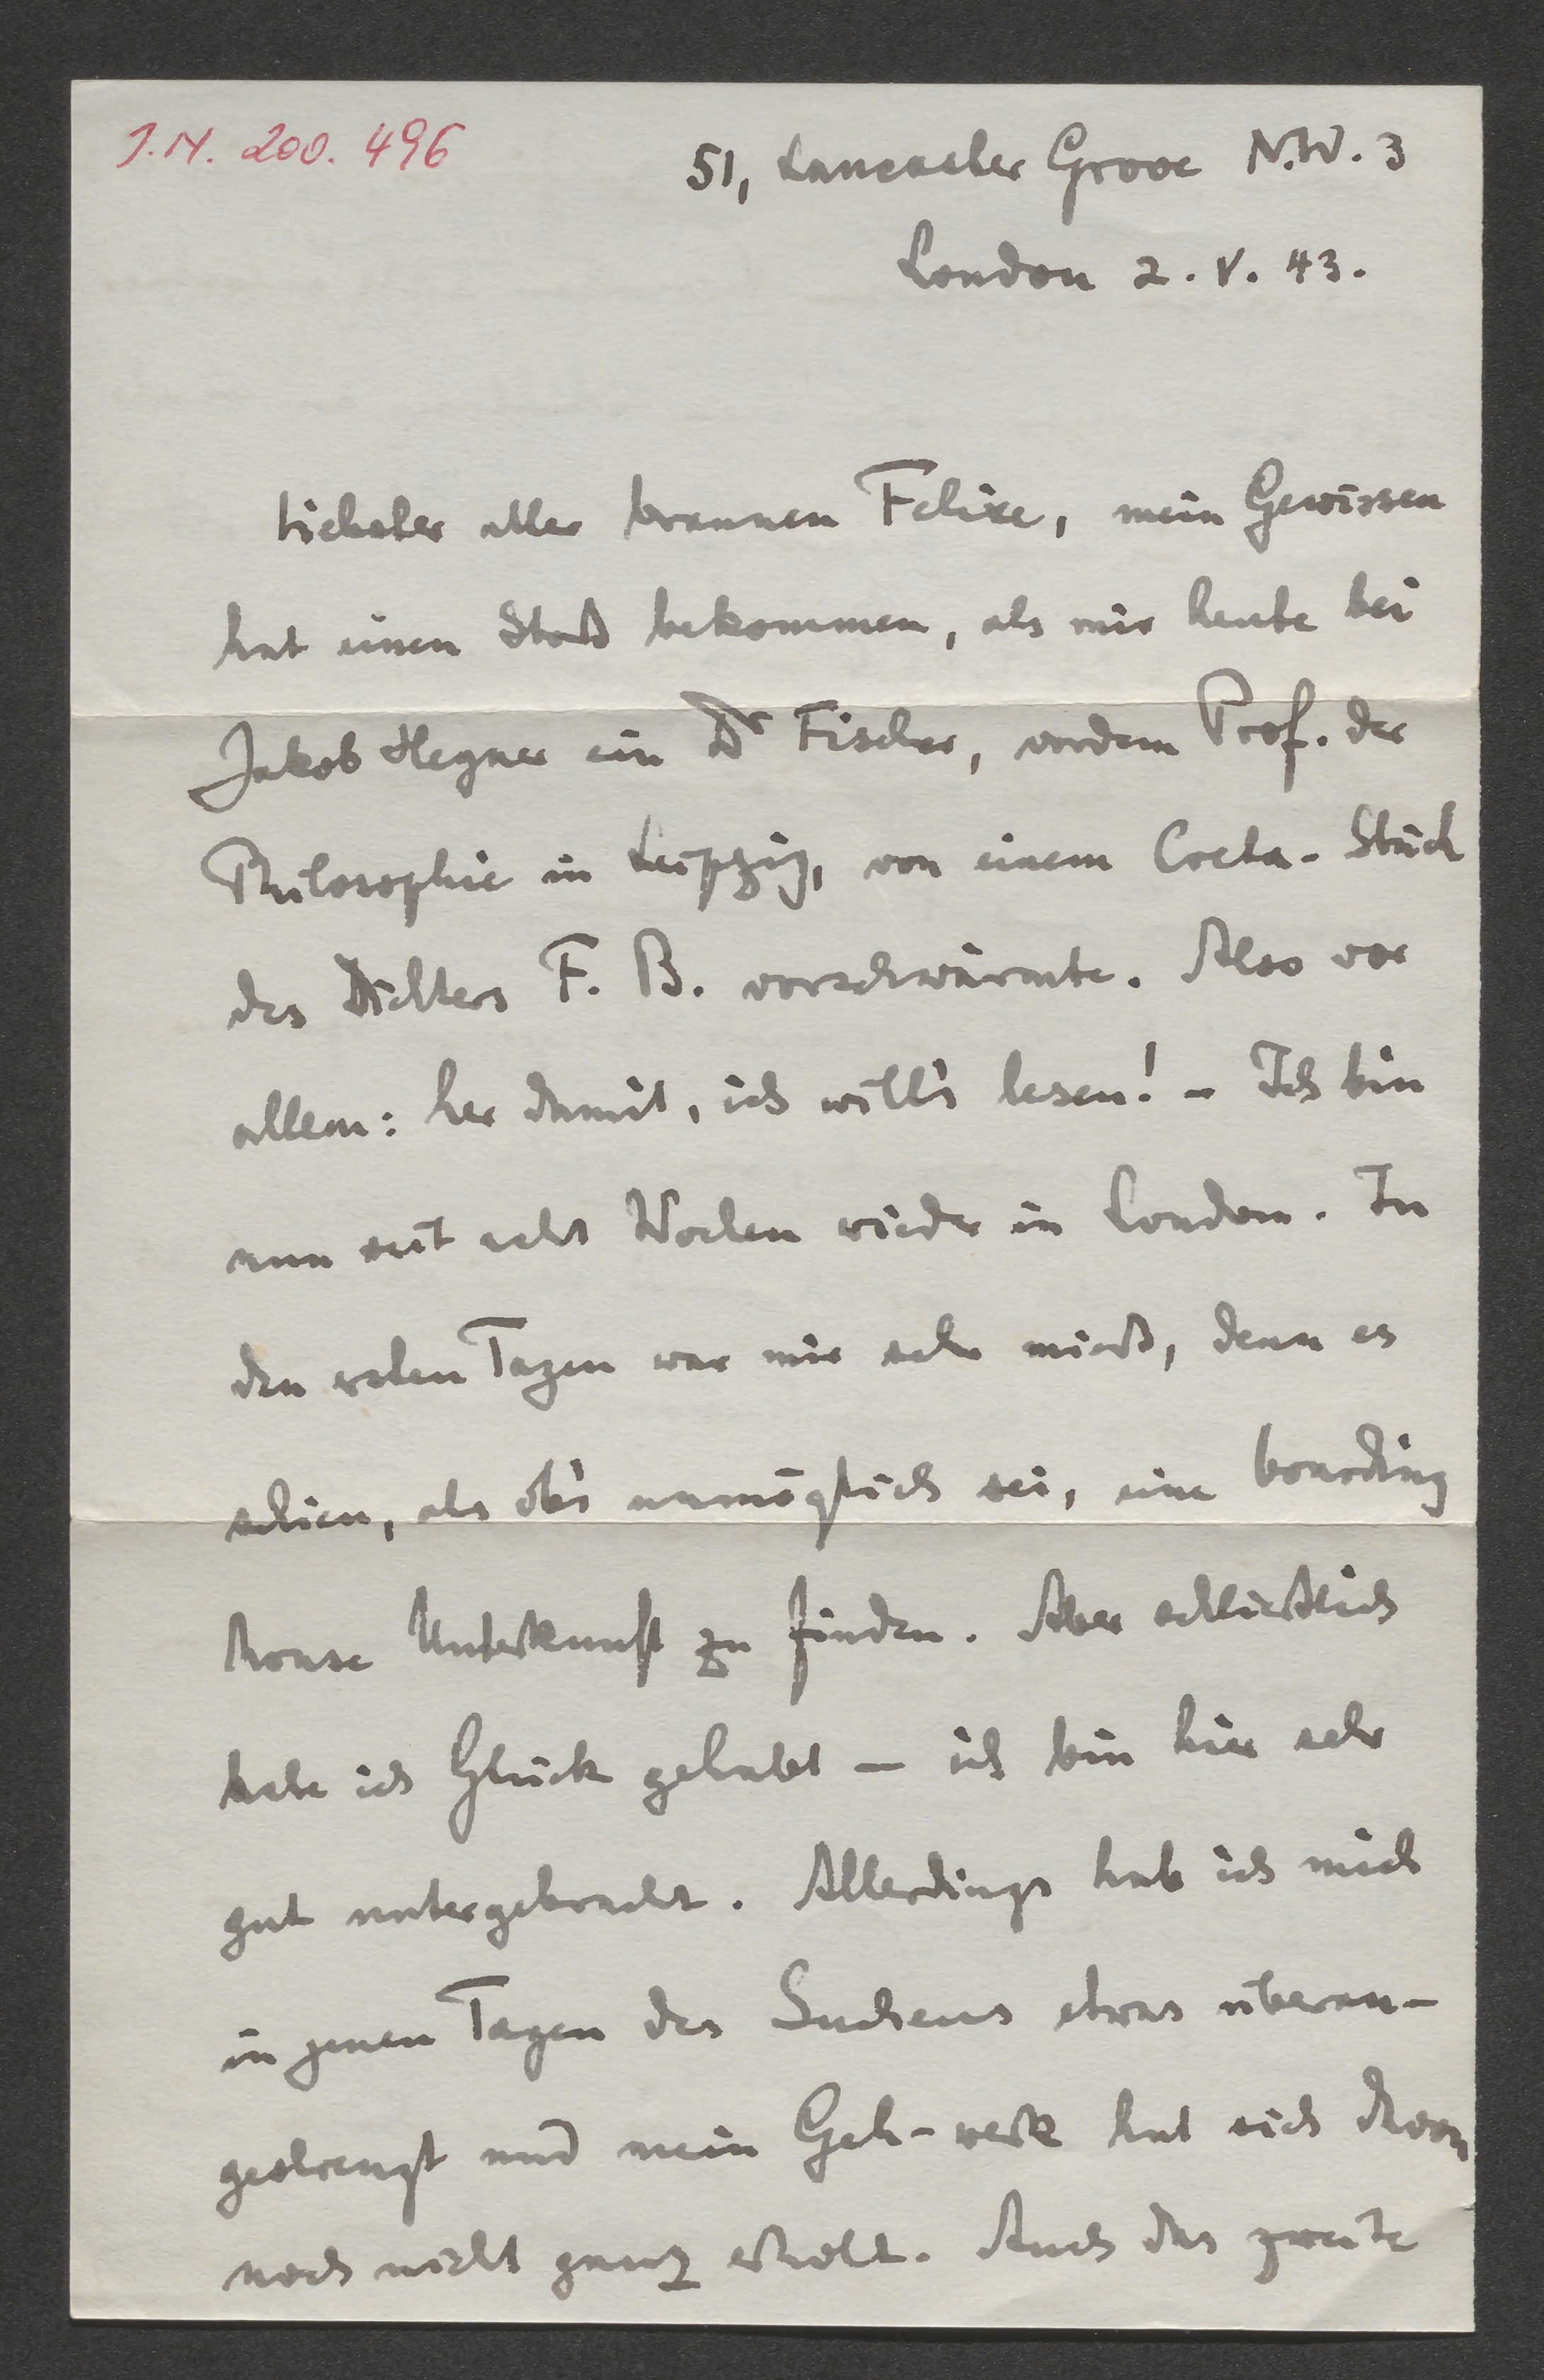 J.N. 200.496
51, Lancaster Grove N.W. 3
London 2. V. 43.
Liebster aller braunen Felixe, mein Gewissen
hat einen Stoß bekommen, als mir heute bei
Jakob Hegner ein Dr Fischer, vordem Prof. der
Philosophie in Leipzig, von einem Costa-Stück
des Dichters F. B. vorschwärmte. Also vor
allem: her damit, ich will's lesen! – Ich bin
nun seit acht Wochen wieder in London. In
den ersten Tagen war mir sehr mieß, denn es
schien, als ob's unmöglich sei, eine boarding
house Unterkunft zu finden. Aber schließlich
habe ich Glück gehabt – ich bin hier sehr
gut untergebracht. Allerdings hab ich mich
in jenen Tagen des Suchens etwas überan-
gestrengt und mein Geh-werk hat sich davon
noch nicht ganz erholt. Auch das zweite